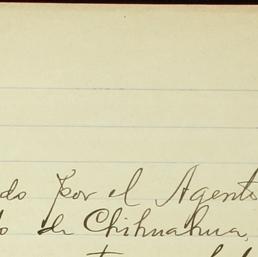 do por el Agente
o de Chihuahua,